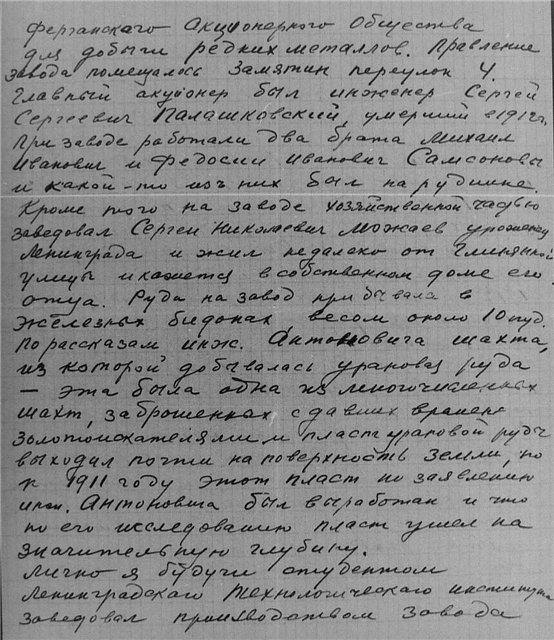 Ферганскаго Акционерного Общества
для добычи редких металлов. Правление
завода помещалось Замятин переулок 4.
Главный акционер был инженер Сергей
Сергеевич Палашковский, умерший в 1912 г.
При заводе работали два брата Михаил
Иванович и Федосий Иванович Самсоновы
и какой-то изъ них был на руднике.
Кроме того на заводе хозяйственной частью
заведовал Сергей Николаевич Можаев уроженец
Ленинграда и жил недалеко от Глиняной
улицы и кажется в собственном доме его
отца. Руда на завод прибывала в
железных бидонах весом около 10 пуд.
По рассказам инж. Антоновича шахта,
из которой добывалась урановая руда
— эта была одна из многочисленных
шахт, заброшенных с давних времен
золотоискателями и пласт урановой руды
выходил почти на поверхность земли, но
к 1911 году этот пласт по заявлению
инж. Антоновича был выработан и что
по его исследованию пласт ушел на
значительную глубину.
Лично я будучи студентом
Ленинградскаго Технологическаго института
заведовал производством завода